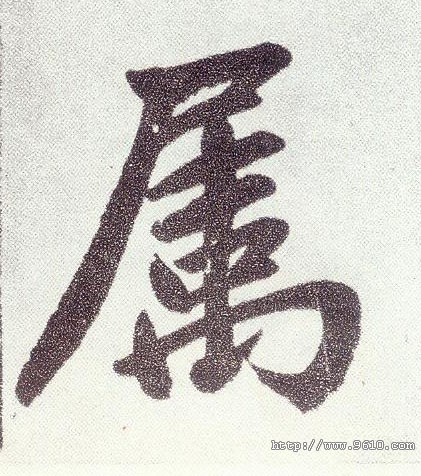 属
http://www.9610.com